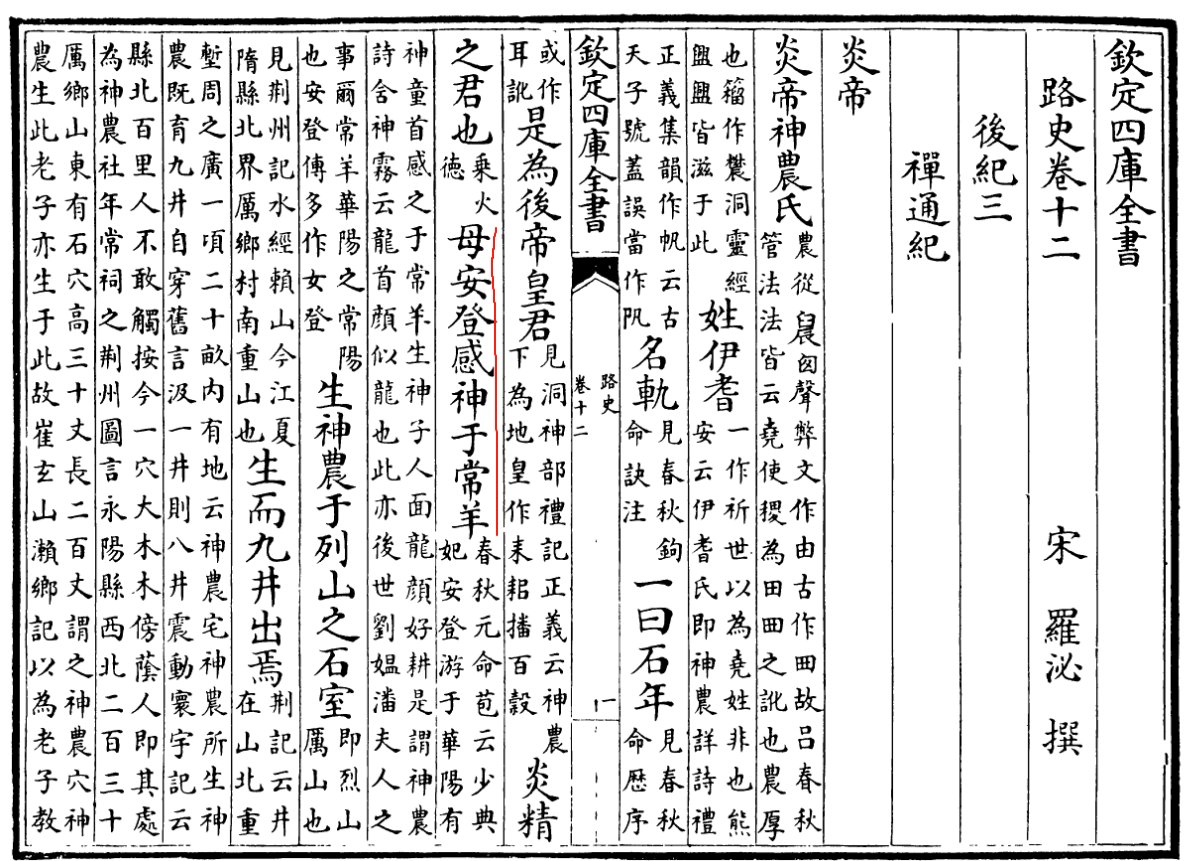 欽定四庫全書
路史卷十二 宋 羅泌 撰
後紀三
禪通紀
炎帝
炎帝神農氏農從囟聲弊文作由古作故吕春秋管法法皆云堯使稷為田田之訛也農厚
也籀作洞靈經盥盥皆滋于此姓伊耆一作祈世以為堯姓非也熊安云伊耆氏即神農詳詩禮
正義集韻作帆云古天子號蓋誤當作名軌見春秋鉤命訣注一曰石年見春秋命厯序
欽定四庫全書 路史卷十二 一
或作耳訛是為後帝皇君見洞神部禮記正義云神農下為地皇作耒耜播百榖炎精
之君也乗火德母安登感神于常羊春秋元命苞云少典妃安登游于華陽有
神童首感之于常羊生神子人面龍顔好耕是謂神農詩含神霧云龍首顔似龍也此亦後世劉媪潘夫人之
事爾常羊華陽之常陽也安登傳多作女登生神農于列山之石室即烈山厲山也
見荆州記水經賴山今江夏隋縣北界厲鄉村南重山也生而九井出焉荆記云井在山北重
塹周之廣一頃二十畝内有地云神農宅神農所生神農既育九井自穿舊言汲一井則八井震動寰宇記云
縣北百里人不敢觸按今一穴大木木傍蔭人即其處為神農社年常祠之荆州圖言永陽縣西北二百三十
厲鄉山東有石穴高三十丈長二百丈謂之神農穴神農生此老子亦生于此故崔玄山瀬鄉記以為老子教